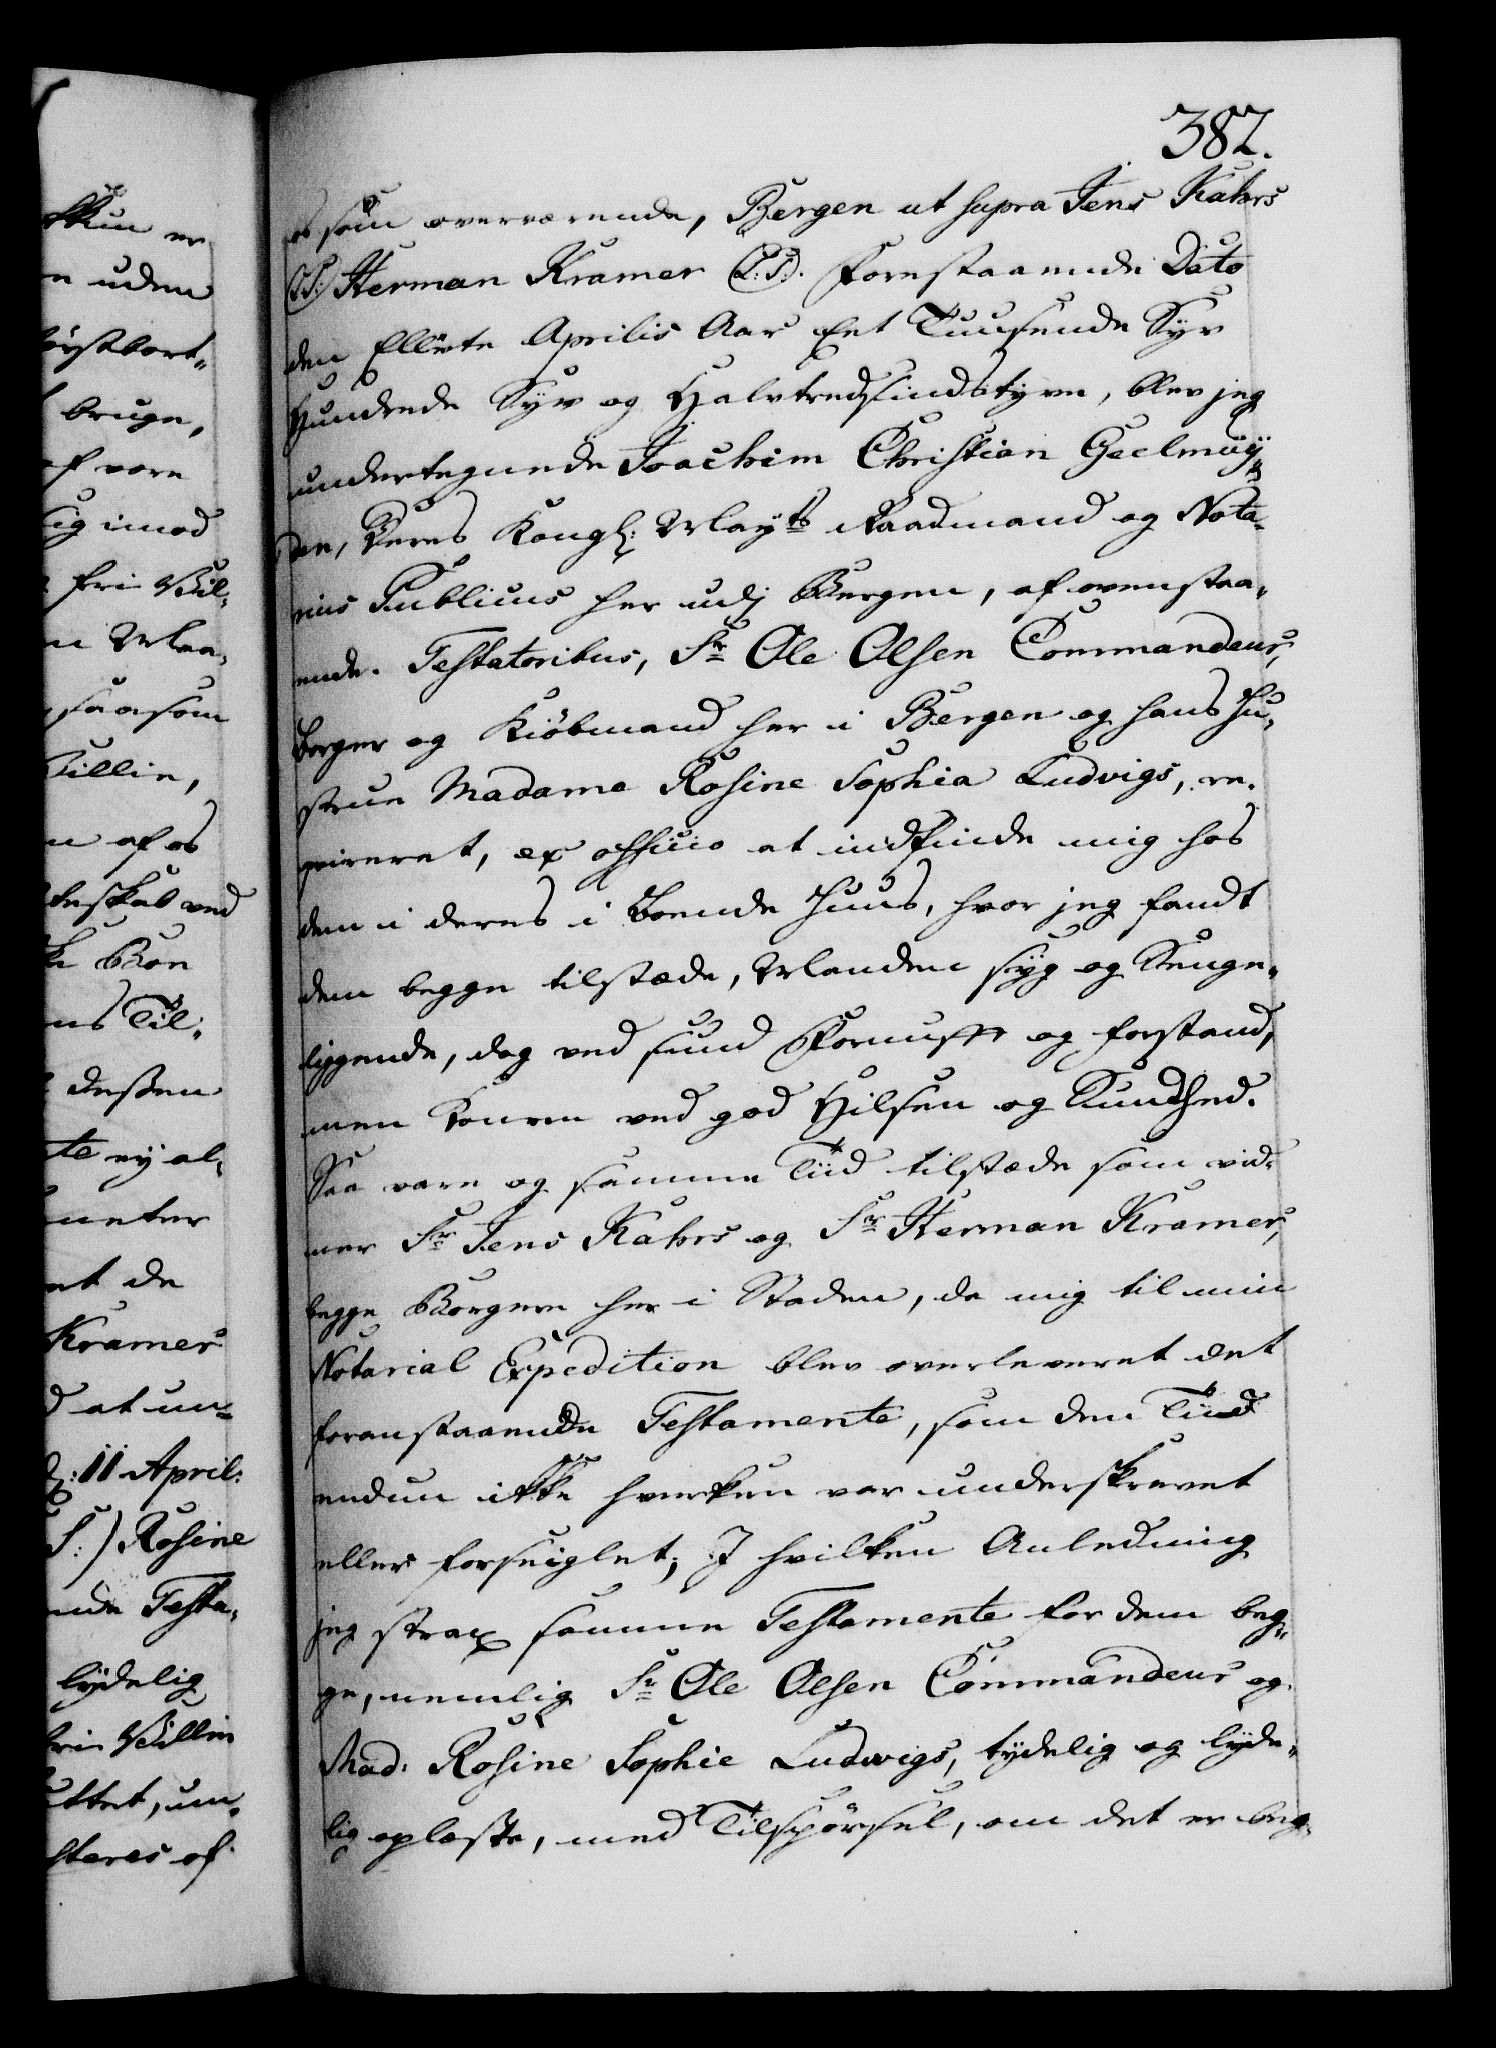 382.
os som overværende, Bergen ut supra Jens Kahrs
(L:S:) Herman Kramer (L:S:). Forestaaende Dato
den Ellevte Aprilis Aar Eet Tuusende Syv
Hundrede Syv og Halvtredsindstyve, blev jeg
undertegnede Joachim Christian Geelmuy-
den, Deres Kongl: Mayts Raadmand og Nota-
rius Publicus her udj Bergen, af ovenstaa-
ende Testatoribus, Sr Ole Olsen Commandeur,
Borger og Kiöbmand her i Bergen og hans Hu-
strue Madame Rosine Sophia Ludvigs, re-
qvireret, ex officio at indfinde mig hos
dem i deres i Boende Huus, hvor jeg fandt
dem begge tilstæde, Manden syg og Senge-
liggende, dog ved sund Fornufft og forstand,
men Konen ved god Hilsen og Sundhed.
Saa vare og samme Tiid tilstæde som vid-
ner Sr Jens Kahrs og Sr Herman Kramer,
begge Borgere her i Staden, da mig til min
Notarial Expedition blev overleveret det
foranstaaende Testamente, som den Tiid
endnu ikke hverken var underskrevet
eller forseiglet; I hvilken Anledning
jeg strax samme Testamente for dem beg-
ge, nemlig Sr Ole Olsen Commandeur og
Mad: Rosine Sophie Ludwigs, tydelig og lyde-
lig oplæste, med Tilspörsel, om det er beg-
ikken er
uden
bruge,
af vore
imod
frie Vil-
saasom
Villie,
af os
ved
Til-
dessen
ey al-
et de
Kramer
at un-
11 April:
S:) Rosine
Testa-
lydelig
Villie